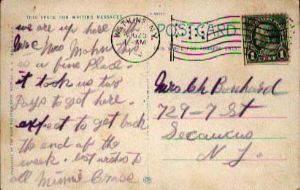 THIS SPACE FOR WRITING MESSAGES
POSTCARD
we are up here
Mrs Mahn
is a fine Place
it took us two
Days to get here.
expect to get back
the end of the
week. best wishes to
all Minnie
Mrs Ch
729-7 St
Secaucus
N. J.
1
CENT